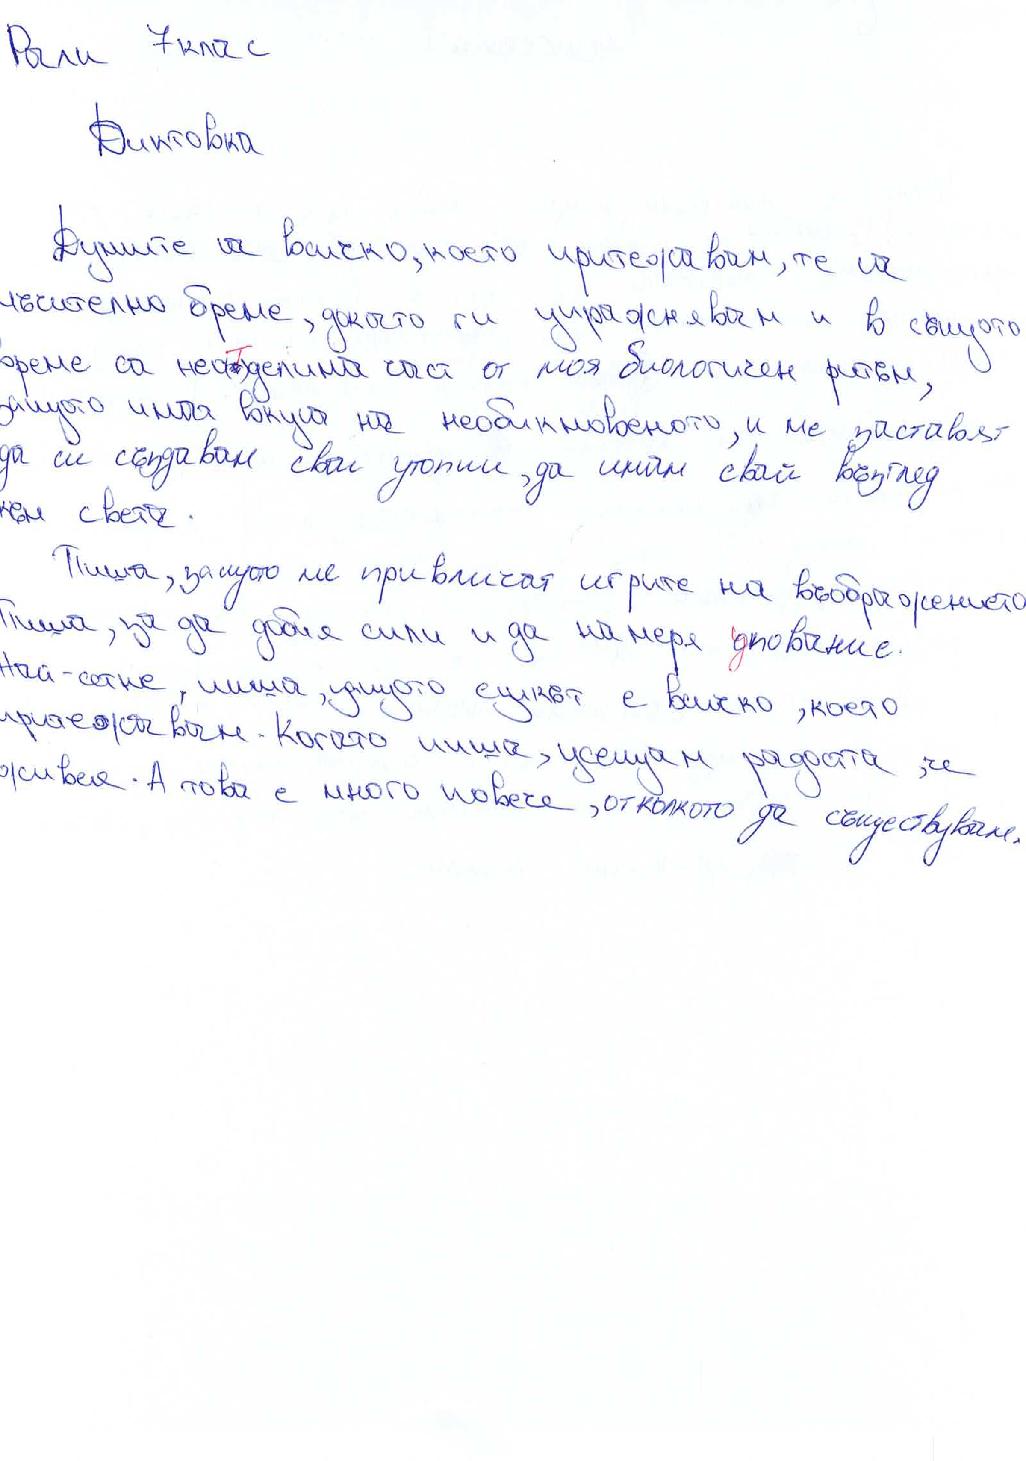 Рали 7клас
Диктовка
Думите са всичко, което притежавам, те са
мъчително бреме, докато ги упражнявам и в същото
време са неотделима част от моя биологичен ритъм,
защото имам вкуса на необикновеното, и ме заставят
да си създавам свои утопии, да имам свой възглед
към света.
Пиша, защото ме привличат игрите на въображението
Пиша, за да добия сили и да намеря упование.
Най-сетне, пиша, защото езикът е всичко, което
притежавам. Когато пиша, усещам радостта, че
живея. А това е много повече, отколкото да съществувам.